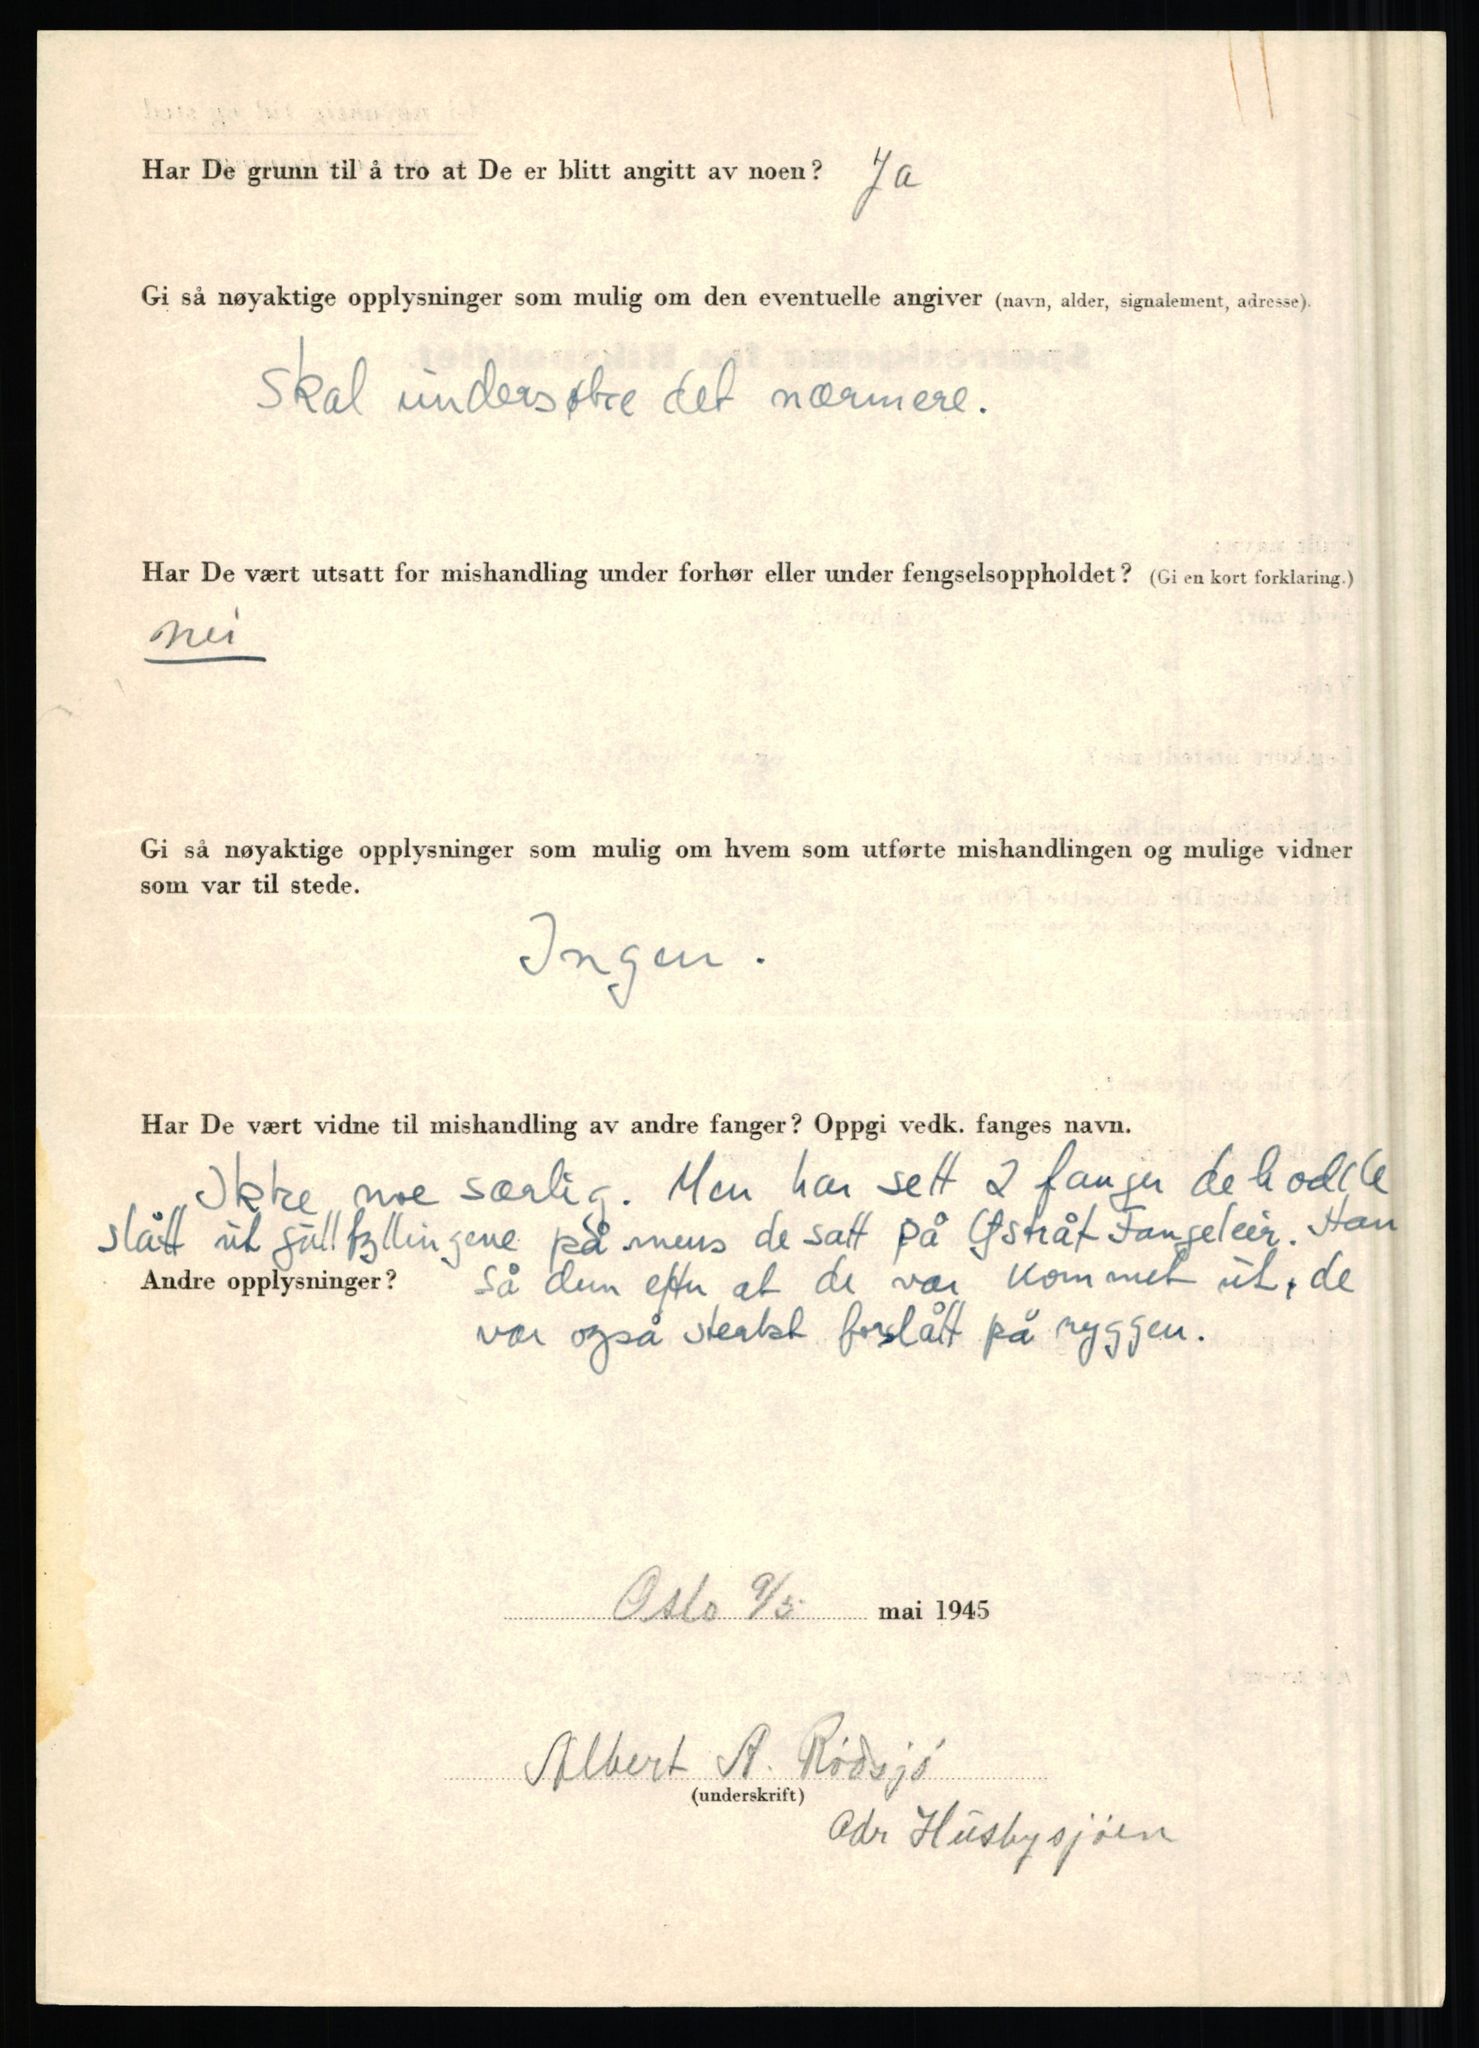 Har De grunn til å tro at De er blitt angitt av noen? Ja
Gi så nøyaktige opplysninger som mulig om den eventuelle angiver (navn, alder, signalement, adresse).
Skal undersøke det nærmere.
Har De vært utsatt for mishandling under forhør eller under fengselsoppholdet? (Gi en kort forklaring.)
nei
Gi så nøyaktige opplysninger som mulig om hvem som utførte mishandlingen og mulige vidner
som var til stede.
Ingen.
Har De vært vidne til mishandling av andre fanger? Oppgi vedk. fanges navn.
Ikke noe særlig. Men har sett 2 fanger de hadde
slått ut gullfyllingene på mens de satt på Østråt Fangeleir. Han
Andre opplysninger? så dem efter at de var kommet ut, de
var også sterkt forslått på ryggen.
Oslo 9/5 mai 1945
Albert A. Rödsjö
(underskrift)
Adr Husbysjöen